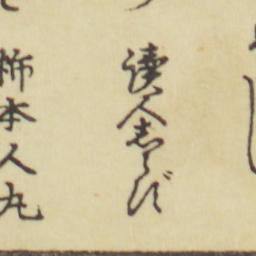 讀人志らず
柿本人丸